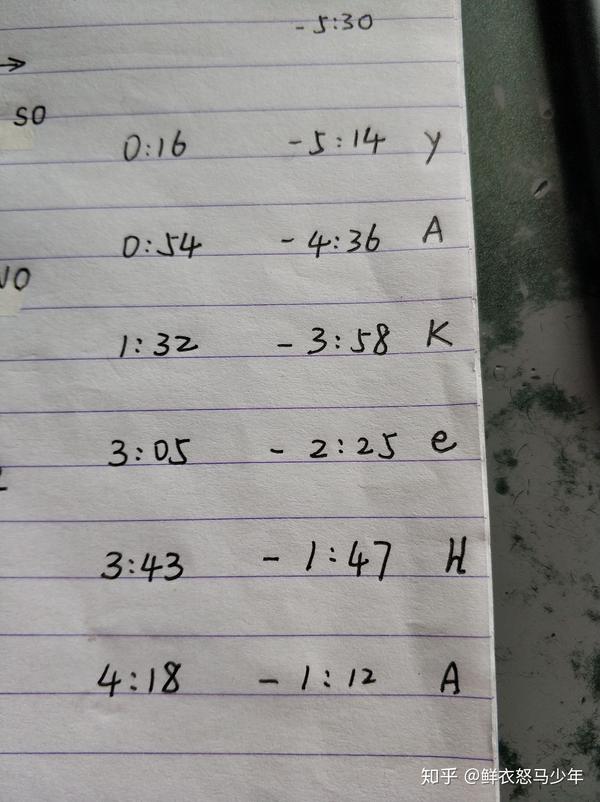 - 5:30
→
SO
0:16 - 5:14 y
0:54 - 4:36 A
NO
1:32 - 3:58 K
3:05 - 2:25 e
3:43 - 1:47 H
4:18 - 1:12 A
知乎 @鲜衣怒马少年